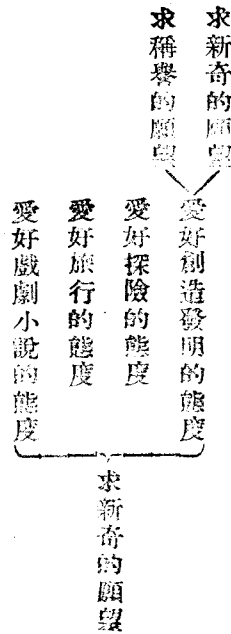 求新奇的願望
求稱譽的願望
愛好創造發明的態度
愛好探險的態度
愛好旅行的態度
愛好戲劇小說的態度
求新奇的願望